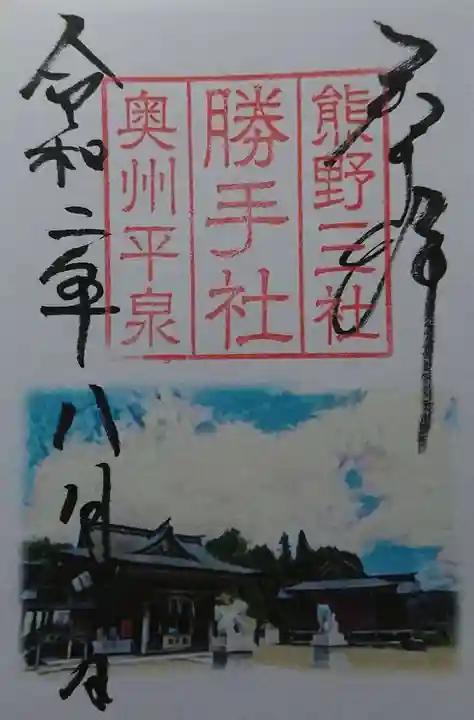 奉拝
熊野三社
勝手社
奥州平泉
令和二年八月